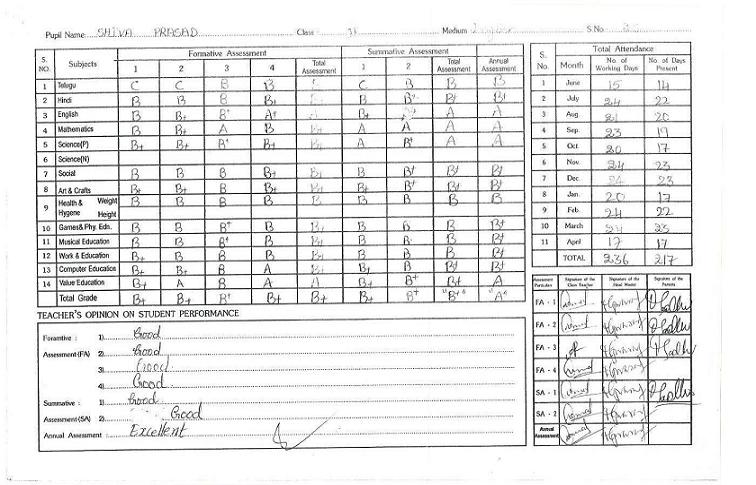 Pupil Name SHIVA PRASAD Class II Medium S.No.
S. NO. Subjects Formative Assessment Summative Assessment Annual Assessment
1 2 3 4 Total Assessment 1 2 Total Assessment
1 Telugu C C B B C B B B
2 Hindi B B B B+ B B+ B+ B+
3 English B B+ B+ A+ B+ A A
4 Mathematics B B+ A B B+ A A A A
5 Science(P) B+ B+ B+ B+ B+ A B+ A A
6 Science(N)
7 Social B B B B+ B+ B B B+ B+
8 Art & Crafts B+ B+ B B+ B+ B+ B+ B+ B+
9 Health & Hygene Weight Height B B B B B B B B B
10 Games& Phy. Edn. B B B+ B B+ B B B B+
11 Musical Education B B B+ B B+ B B B B+
12 Work & Education B+ B B B B+ B B B B+
13 Computer Education B+ B+ B A B+ B+ B B+ B+
14 Value Education B+ A B A A B+ B+ B+ A
Total Grade B+ B+ B+ B+ B+ B+ B+ "B+" "A"
S. No. Month Total Attendance
No. of Working Days No. of Days Present
1 June 15 14
2 July 24 22
3 Aug 21 20
4 Sep. 23 19
5 Oct. 20 17
6 Nov. 24 23
7 Dec. 24 23
8 Jan. 20 17
9 Feb. 24 22
10 March 24 23
11 April 17 17
TOTAL 236 217
Assessment Particulars Signature of the Class Teacher Signature of the Head Master Signature of the Parents
FA - 1
FA - 2
FA - 3
FA - 4
SA - 1
SA - 2
Annual Assessment
TEACHER'S OPINION ON STUDENT PERFORMANCE
Foramtive : 1) Good
Assessment(FA) 2) Good
3) Good
4) Good
Summative : 1) Good
Assessment(SA) 2) Good
Annual Assessment : Excellent